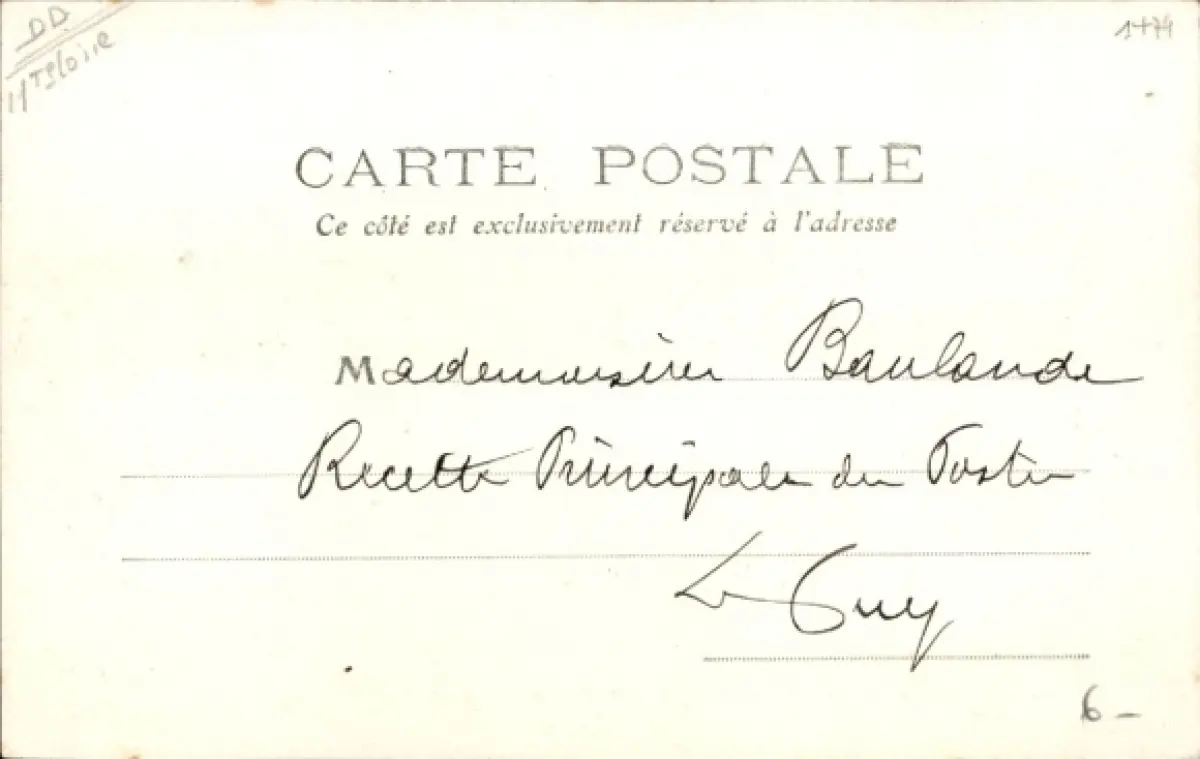 DD
Hte Loire
1+74
CARTE POSTALE
Ce côté est exclusivement réservé à l'adresse
Mademoiselle Baulande
Recette Principale des Postes
Le Puy
6 –